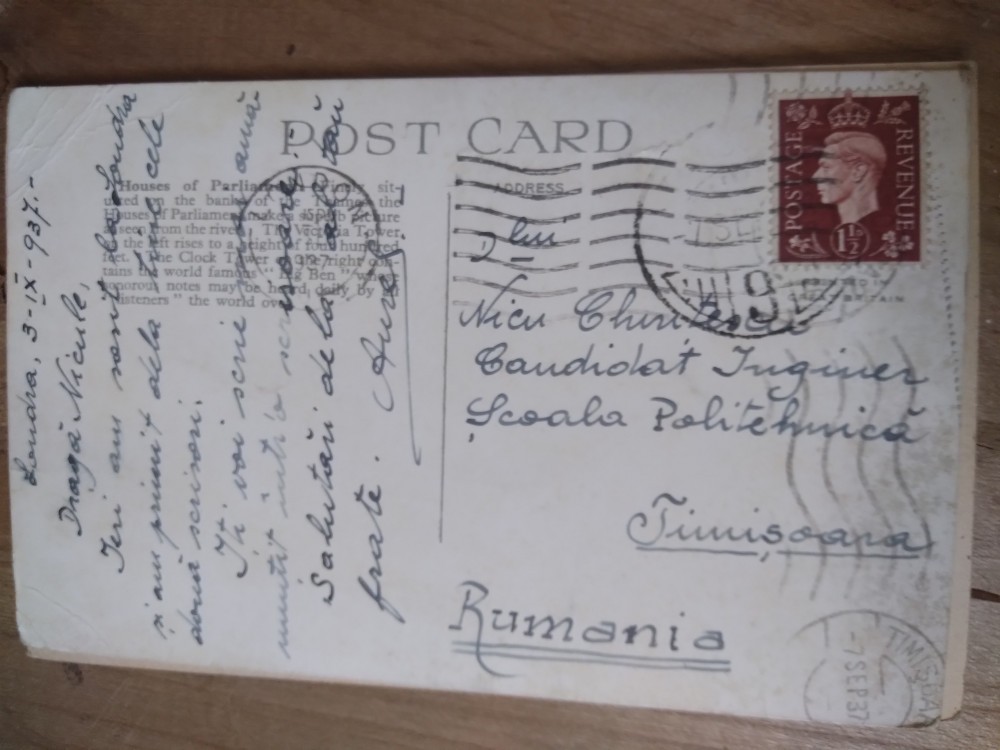 POST CARD
ADDRESS
Houses of Parliament. Finely sit-
uated on the banks of the Thames the
Houses of Parliament make a superb picture
seen from the river. The Victoria Tower
the left rises to a height of four hundred
feet. the Clock Tower on the right con-
tains the world famous "Big Ben" whose
sonorous notes may be heard daily by
listeners" the world over
Londra, 3-IX-937.-
Dragă Nicule,
Ieri am sosit la Londra
și am primit dela tine cele
două scrisori.
Îți voi scrie mai amă-
nunțit într'o scrisoare.
Salutări de la al tău
frate.
Aurel
POSTAGE
REVENUE
1½
Dlui
Nicu
Candidat Inginer
Școala Politehnică
Timișoara
Rumania
TIMISOARA
-7 SEP 37